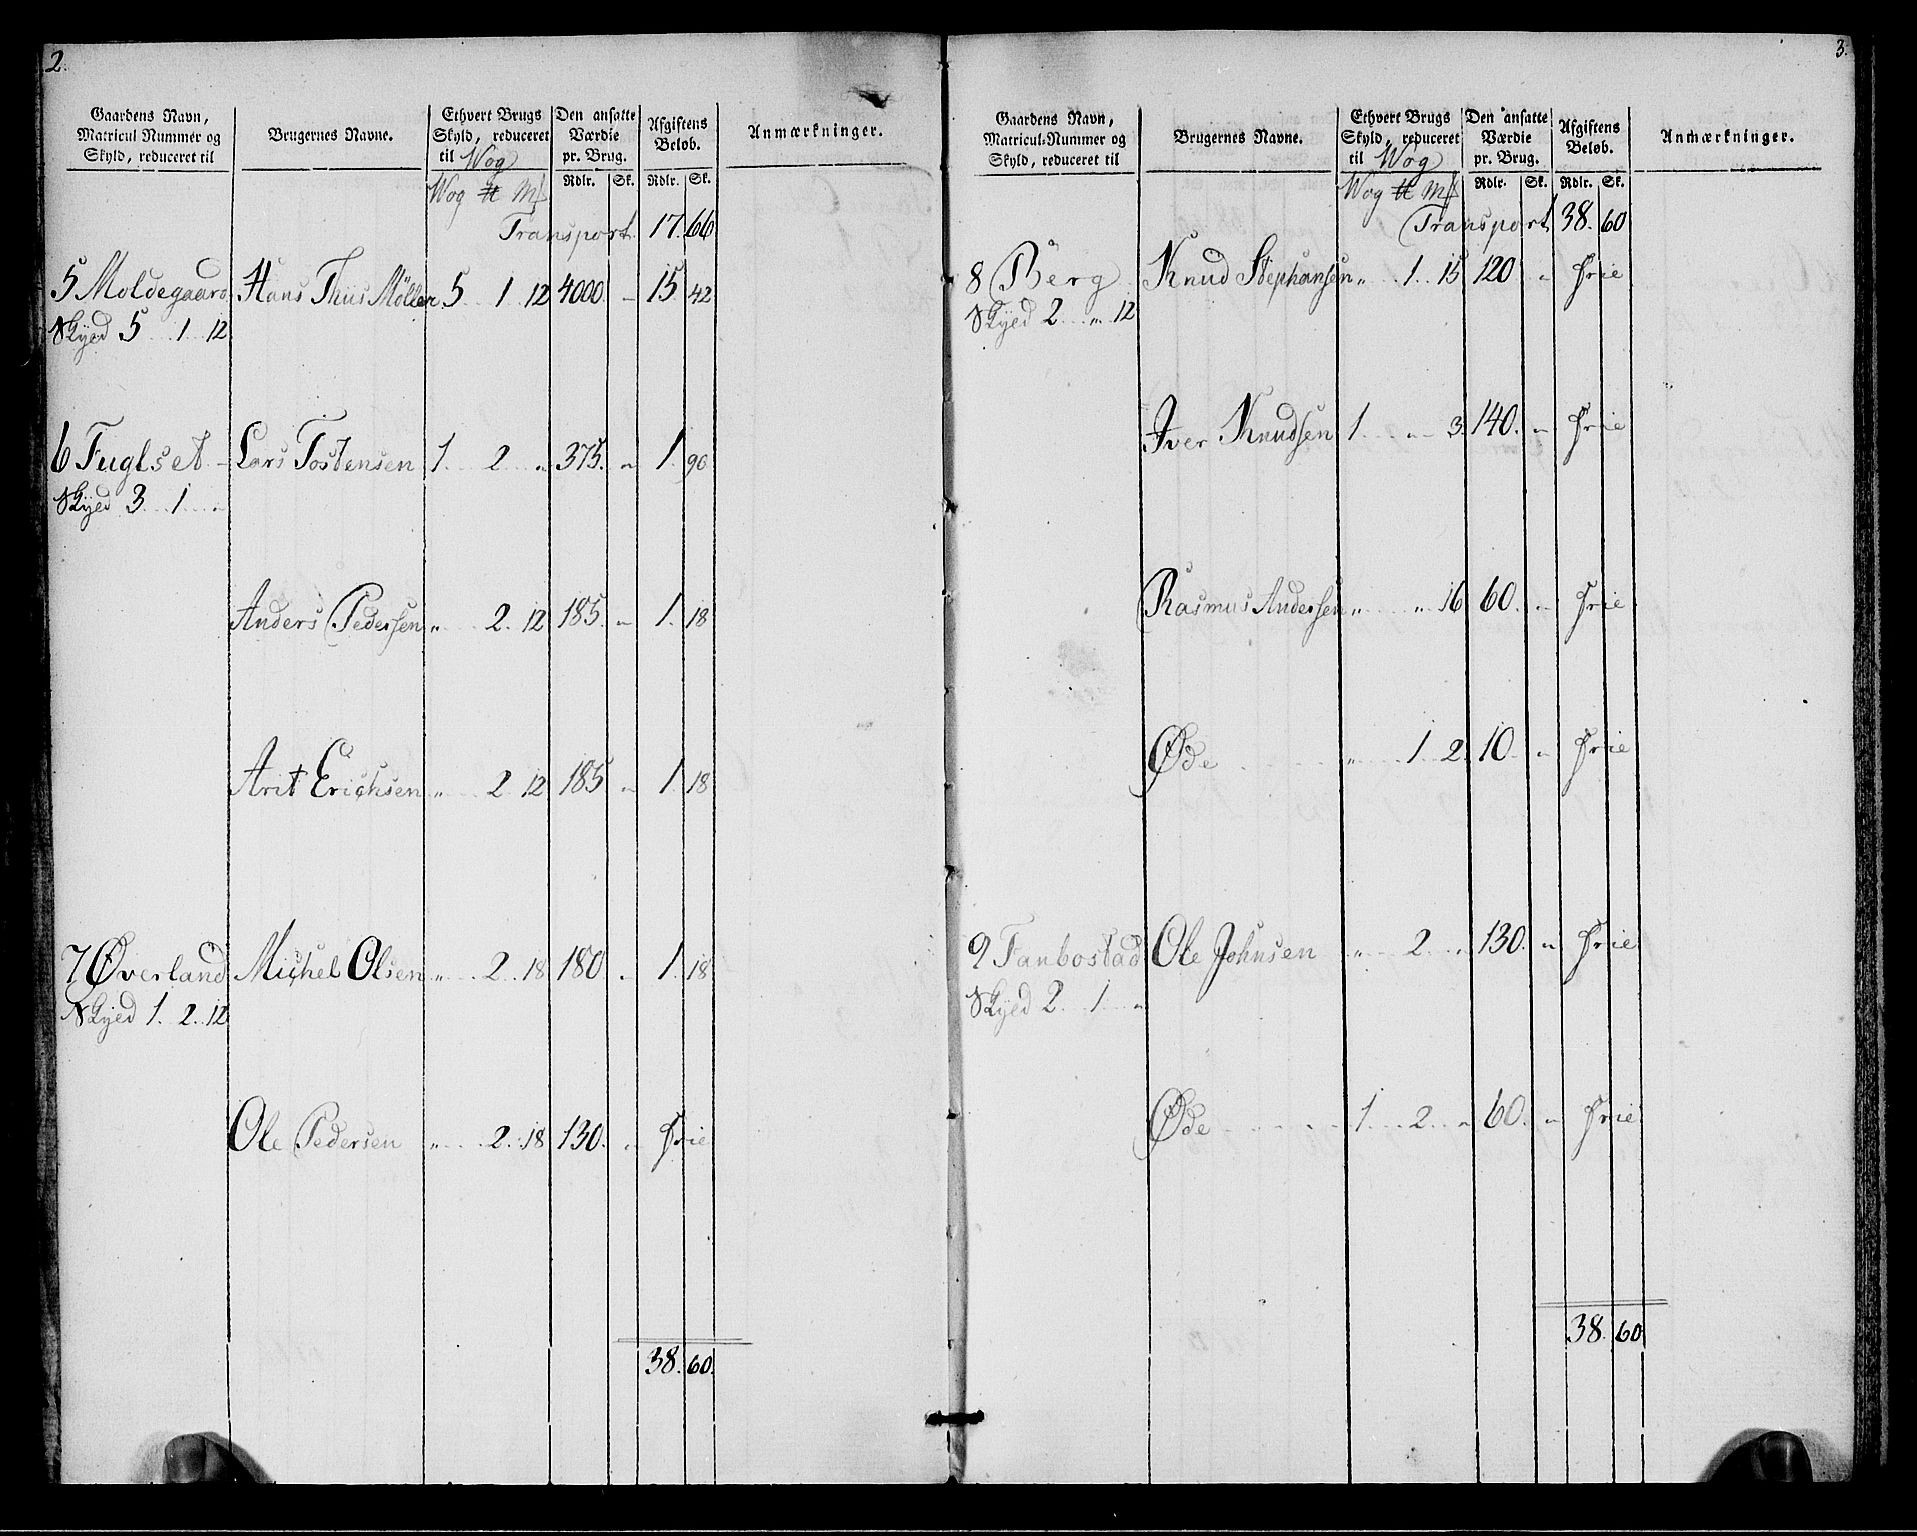 2.
Gaardens Navn, Matricul Nummer og Skyld, reduceret til | Brugernes Navne. | Ethvert Brugs Skyld, reduceret til Wog | Den ansatte Værdie pr. Brug. | Afgiftens Beløb. | Anmærkninger.
Wog ℔ Mk | Rdlr. | Sk. | Rdlr. | Sk.
Transport 17. 66
5 Moldegaard Hans Thiis Møller 5 1 12 4000. „ 15 42
Skyld 5 1 12
6 Fuglset Lars Tostensen 1. 2 „ 375. „ 1. 90
Skyld 3 1 „
Anders Pedersen „ 2. 12 185. „ 1. 18
Arit Erichsen „ 2 12 185 „ 1. 18
7 Øverland Michel Olsen „ 2. 18 180 „ 1. 18
Skyld 1. 2. 12
Ole Pedersen „ 2. 18 130. „ frie
38. 60.
3.
Gaardens Navn, Matricul-Nummer og Skyld, reduceret til | Brugernes Navne. | Ethvert Brugs Skyld, reduceret til Wog | Den ansatte Værdie pr. Brug. | Afgiftens Beløb. | Anmærkninger.
Wog ℔ Mk | Rdlr. | Sk. | Rdlr. | Sk.
Transport 38. 60
8 Berg Knud Stephansen „ 1. 15 120 „ frie
Skyld 2 „ 12
Iver Knudsen 1 „ 3. 140. „ frie
Rasmus Andersen „ „ 16 60. „ frie
Øde „ 1. 2. 10. „ frie
9 Fanbostad Ole Johnsen „ 2. „ 130. „ frie
Skyld 2. 1 „
Øde 1. 2. „ 60. „ frie
38. 60.